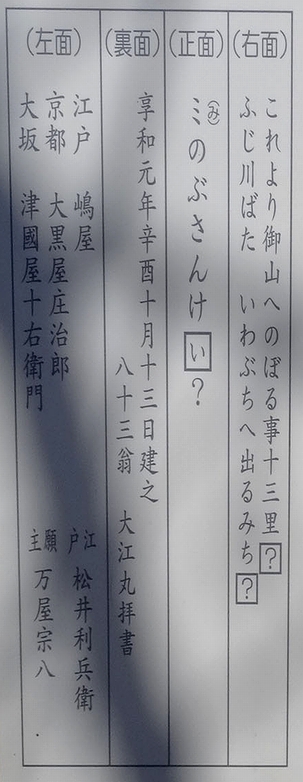 (右面)
これより御山へのぼる事十三里?
ふじ川ばた いわぶちへ出るみち?
(正面)
ミ(み)のぶさんけい?
(裏面)
享和元年辛酉十月十三日建之
八十三翁 大江丸拝書
(左面)
江戸 嶋屋
京都 大黒屋庄治郎
大坂 津國屋十右衛門
江戸 松井利兵衛
願主 万屋宗八